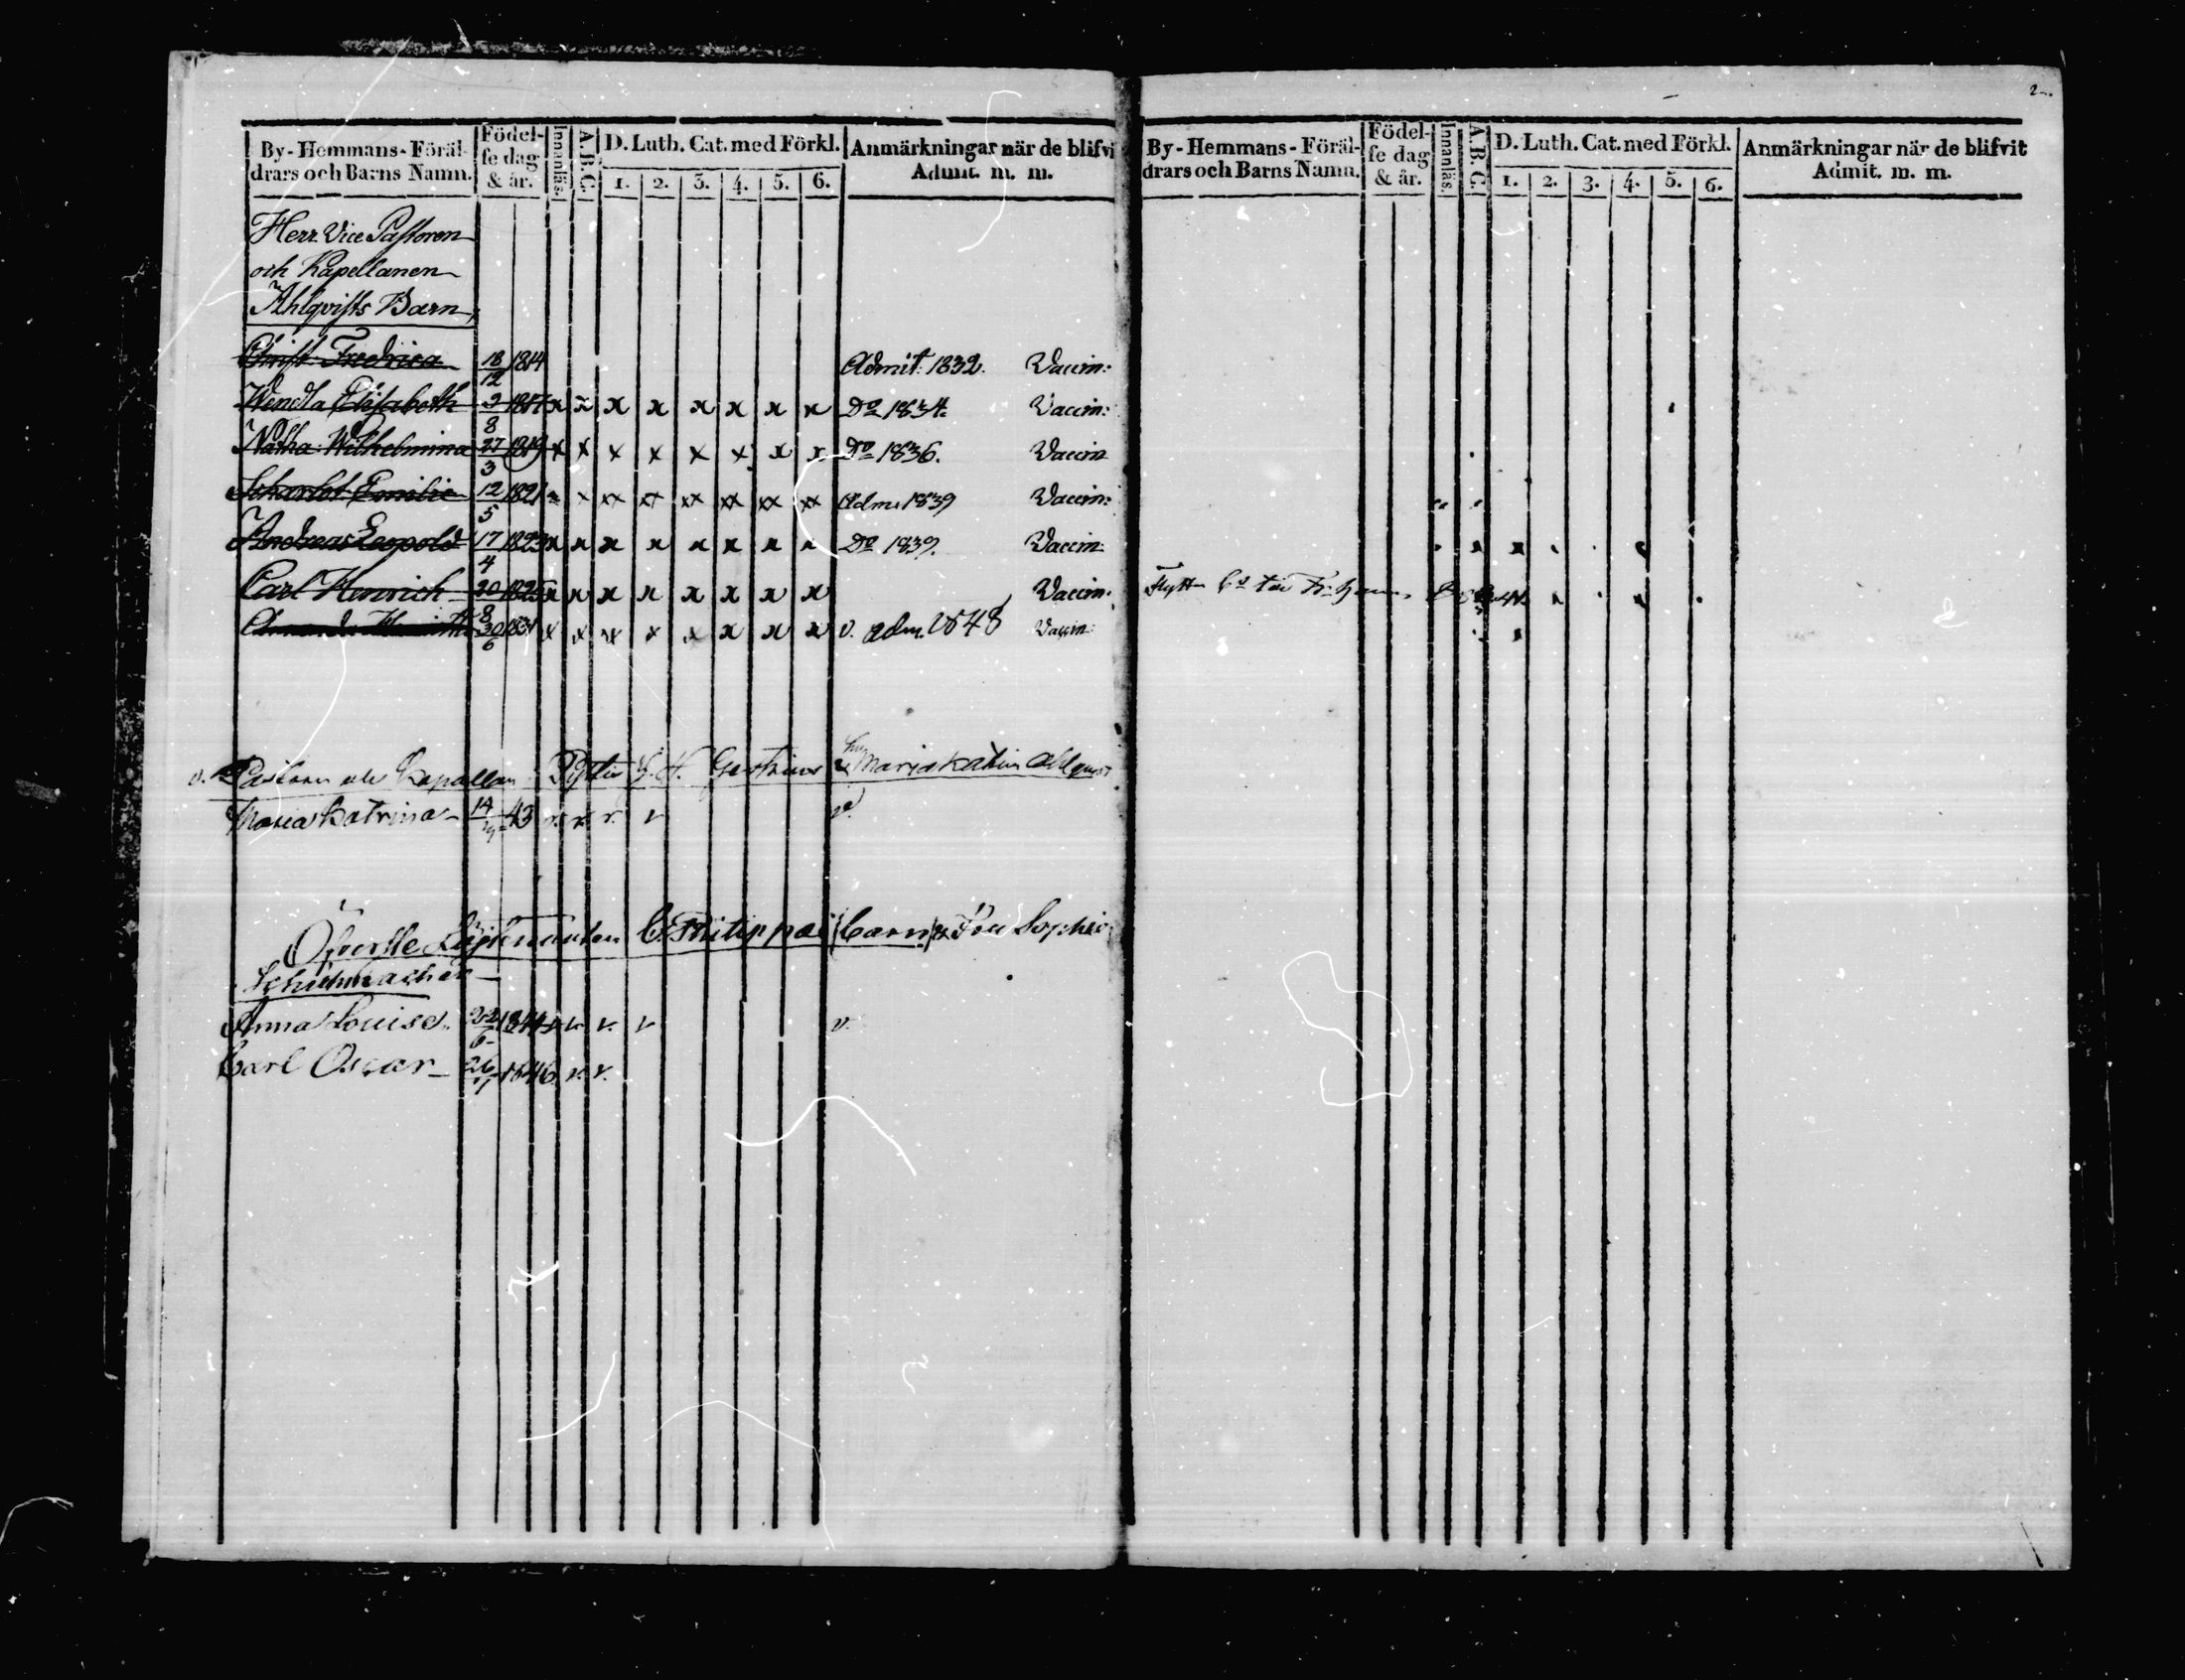 2.
By-Hemmans-Föräl-
drars och Barns Namn.
Födel-
se dag
& år.
Innanläs.
A.B.C.
D. Luth. Cat. med Förkl.
1. 2. 3. 4. 5. 6.
Anmärkningar när de blifvi
Admit. m. m.
Herr Vice Pastoren
och Kapellanen
Ahlqvists Barn,
Christ. Fredrica 18/12 1814 Admit. 1832. Vaccin:
Wendla Elisabeth 2/8 1817 x x x x x x x x Do 1834. Vaccin:
Natha: Wilhelmina 27/3 1819 x x x x x x x x Do 1836. Vaccin
Scharlot Emilie 12/5 1821 Adm. 1839 Vaccin:
Andreas Leopold 17/4 1823 x x x x x x x x Do 1839. Vaccin:
Carl Henrich 20/8 1825 x x x x x x x x Vaccin:
30/6 v. adm. 1848 Vaccin:
v. Pastorn och Kapellan G. H. & Maria Katrin Ahlqvist
Maria Katrina 14 43 v. v. v. v
Öfverste Löjtenanten C. Philippæi barn & Fru Sophie
Schuhmacher
Anna Louise. 22/6 1844 v. v. v. v v.
Carl Oscar 1846. v. v.
By-Hemmans-Föräl-
drars och Barns Namn.
Födel-
se dag
& år.
Innanläs.
A.B.C.
D. Luth. Cat. med Förkl.
1. 2. 3. 4. 5. 6.
Anmärkningar när de blifvit
Admit. m. m.
Flytt